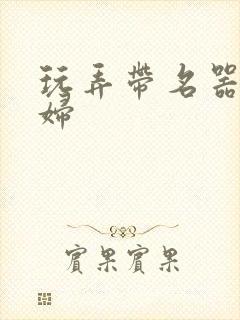 玩弄帶名器
婦
實果實果